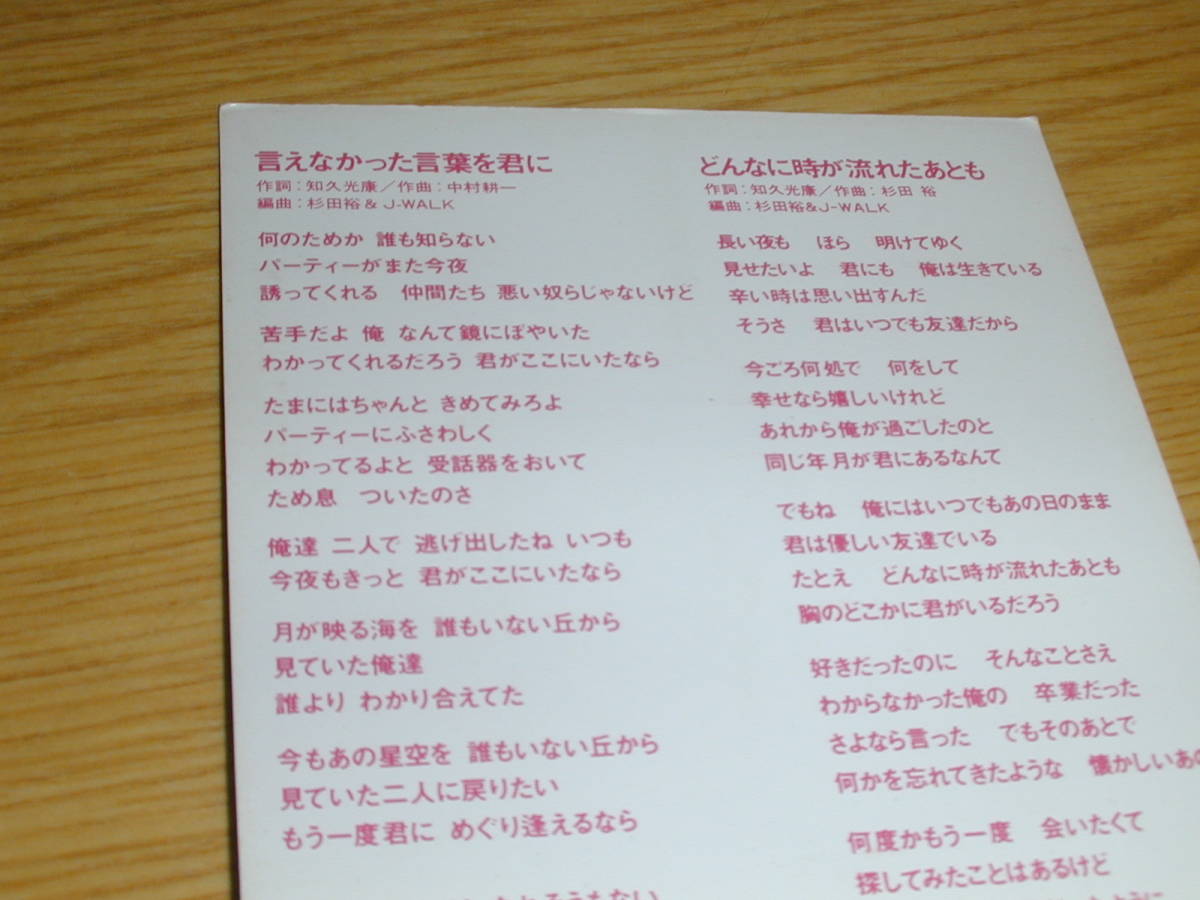 言えなかった言葉を君に
作詞：知久光康／作曲：中村耕一
編曲：杉田裕＆J-WALK
何のためか 誰も知らない
パーティーがまた今夜
誘ってくれる 仲間たち 悪い奴らじゃないけど
苦手だよ 俺 なんて鏡にぼやいた
わかってくれるだろう 君がここにいたなら
たまにはちゃんと きめてみろよ
パーティーにふさわしく
わかってるよと 受話器をおいて
ため息 ついたのさ
俺達 二人で 逃げ出したね いつも
今夜もきっと 君がここにいたなら
月が映る海を 誰もいない丘から
見ていた俺達
誰より わかり合えてた
今もあの星空を 誰もいない丘から
見ていた二人に戻りたい
もう一度君に めぐり逢えるなら
どんなに時が流れたあとも
作詞：知久光康／作曲：杉田 裕
編曲：杉田裕＆J-WALK
長い夜も ほら 明けてゆく
見せたいよ 君にも 俺は生きている
辛い時は思い出すんだ
そうさ 君はいつでも友達だから
今ごろ何処で 何をして
幸せなら嬉しいけれど
あれから俺が過ごしたのと
同じ年月が君にあるなんて
でもね 俺にはいつでもあの日のまま
君は優しい友達でいる
たとえ どんなに時が流れたあとも
胸のどこかに君がいるだろう
好きだったのに そんなことさえ
わからなかった俺の 卒業だった
さよなら言った でもそのあとで
何かを忘れてきたような 懐かしいあの
何度かもう一度 会いたくて
探してみたことはあるけど